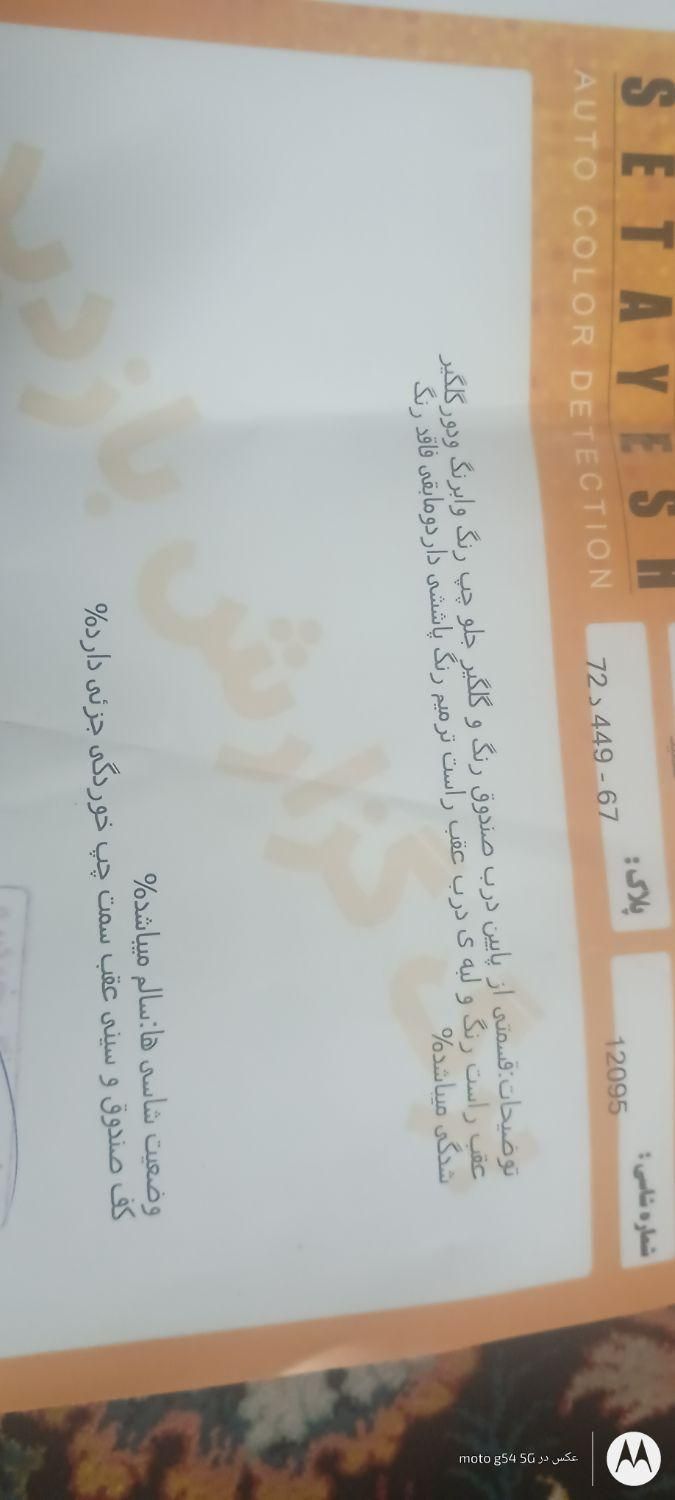 SETAYESH
AUTO COLOR DETECTION
شماره شاسی :
12095
پلاک :
72 د 449 - 67
توضیحات:قسمتی از پایین درب صندوق رنگ و گلگیر جلو چپ رنگ وابرنگ ودور گلگیر
عقب راست رنگ و لبه ی درب عقب راست ترمیم رنگ پاششی داردومابقی فاقد رنگ
شدگی میباشد%
گزارش بازدید
وضعیت شاسی ها:سالم میباشد%
کف صندوق و سینی عقب سمت چپ خوردگی جزئی دارد%
عکس در moto g54 5G